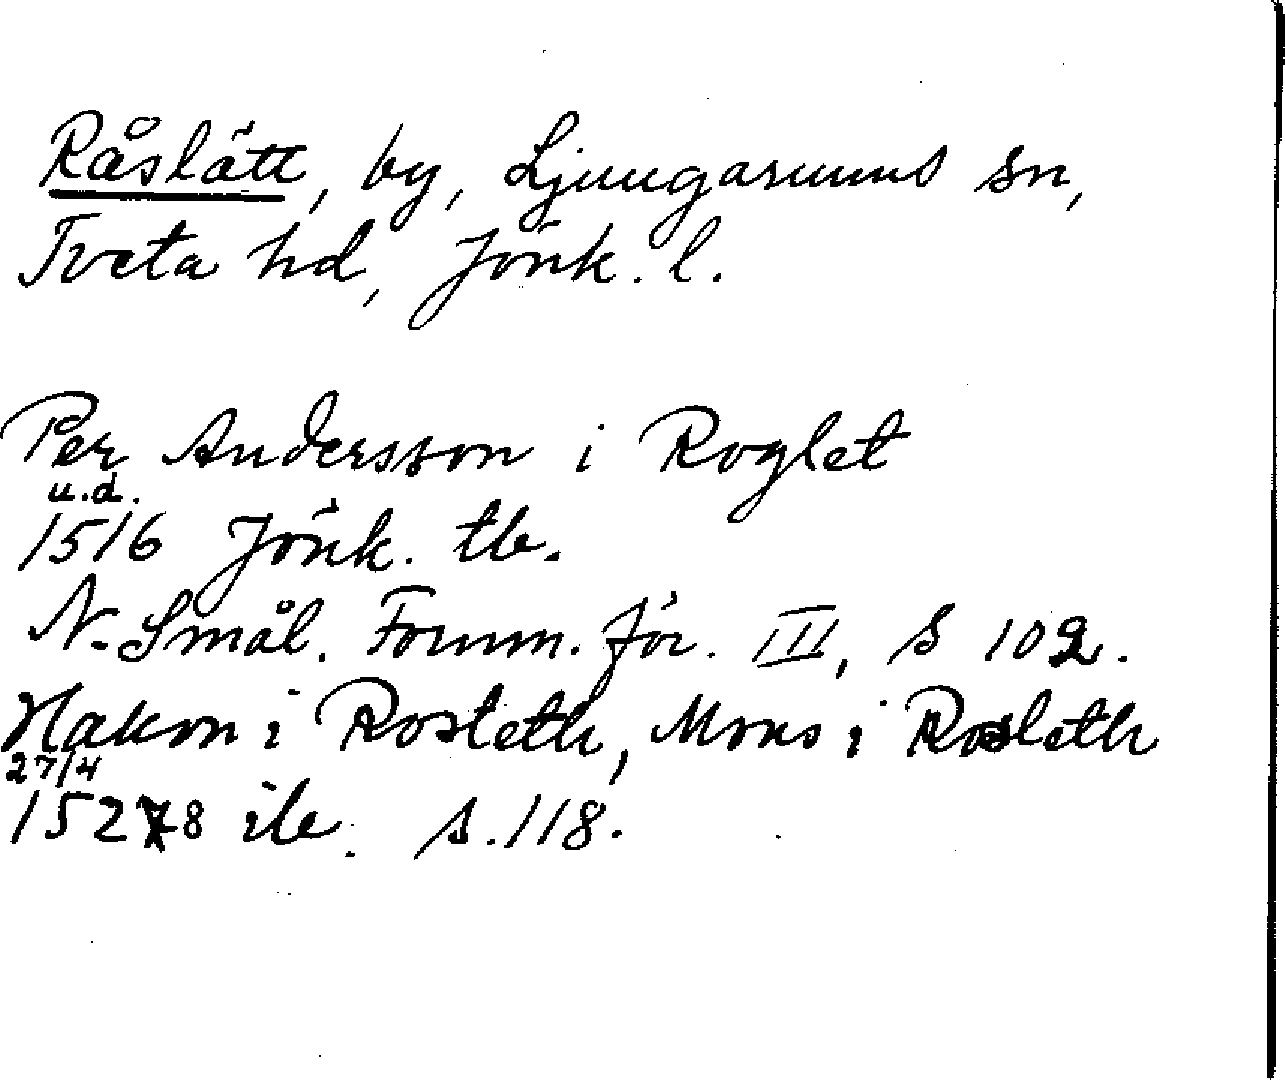 Råslätt, by, Ljungarums sn,
Tveta hd, Jönk. l.
Per Andersson i Roglet
u.d.
1516 Jönk. tb.
N. Smål. Fornm. för. III, s 102.
Hakon i Rosleth, Mons i Rosleth
27/4
1528 ib. s. 118.